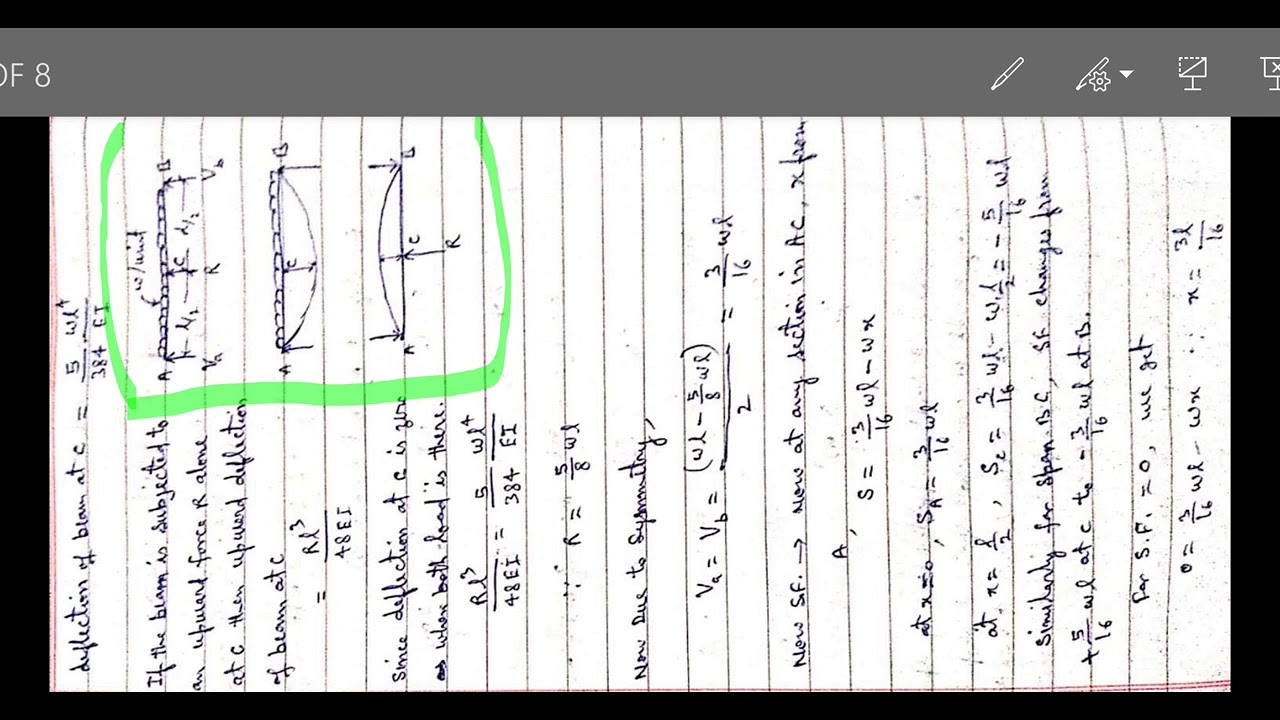 OF 8
deflection of beam at C = 5/384 wl⁴/EI
If the beam is subjected to
an upward force R alone
at C then upward deflection
of beam at C
= Rl³/48EI
w/unit
A C B
l/2 l/2
Va R Vb
A C B
A C B
R
Since deflection at C is zero
when both load is there.
Rl³/48EI = 5/384 wl⁴/EI
∴ R = 5/8 wl
Now Due to Symmetry,
Va = Vb = (wl - 5/8 wl)/2 = 3/16 wl
Now SF. → Now at any section in AC, x from
A,
S = 3/16 wl - wx
at x=0, SA = 3/16 wl
at x = l/2, Sc = 3/16 wl - w.l/2 = - 5/16 wl
Similarly for span BC, SF changes from
+ 5/16 wl at C to - 3/16 wl at B.
for S.F. = 0, we get
0 = 3/16 wl - wx ∴ x = 3l/16